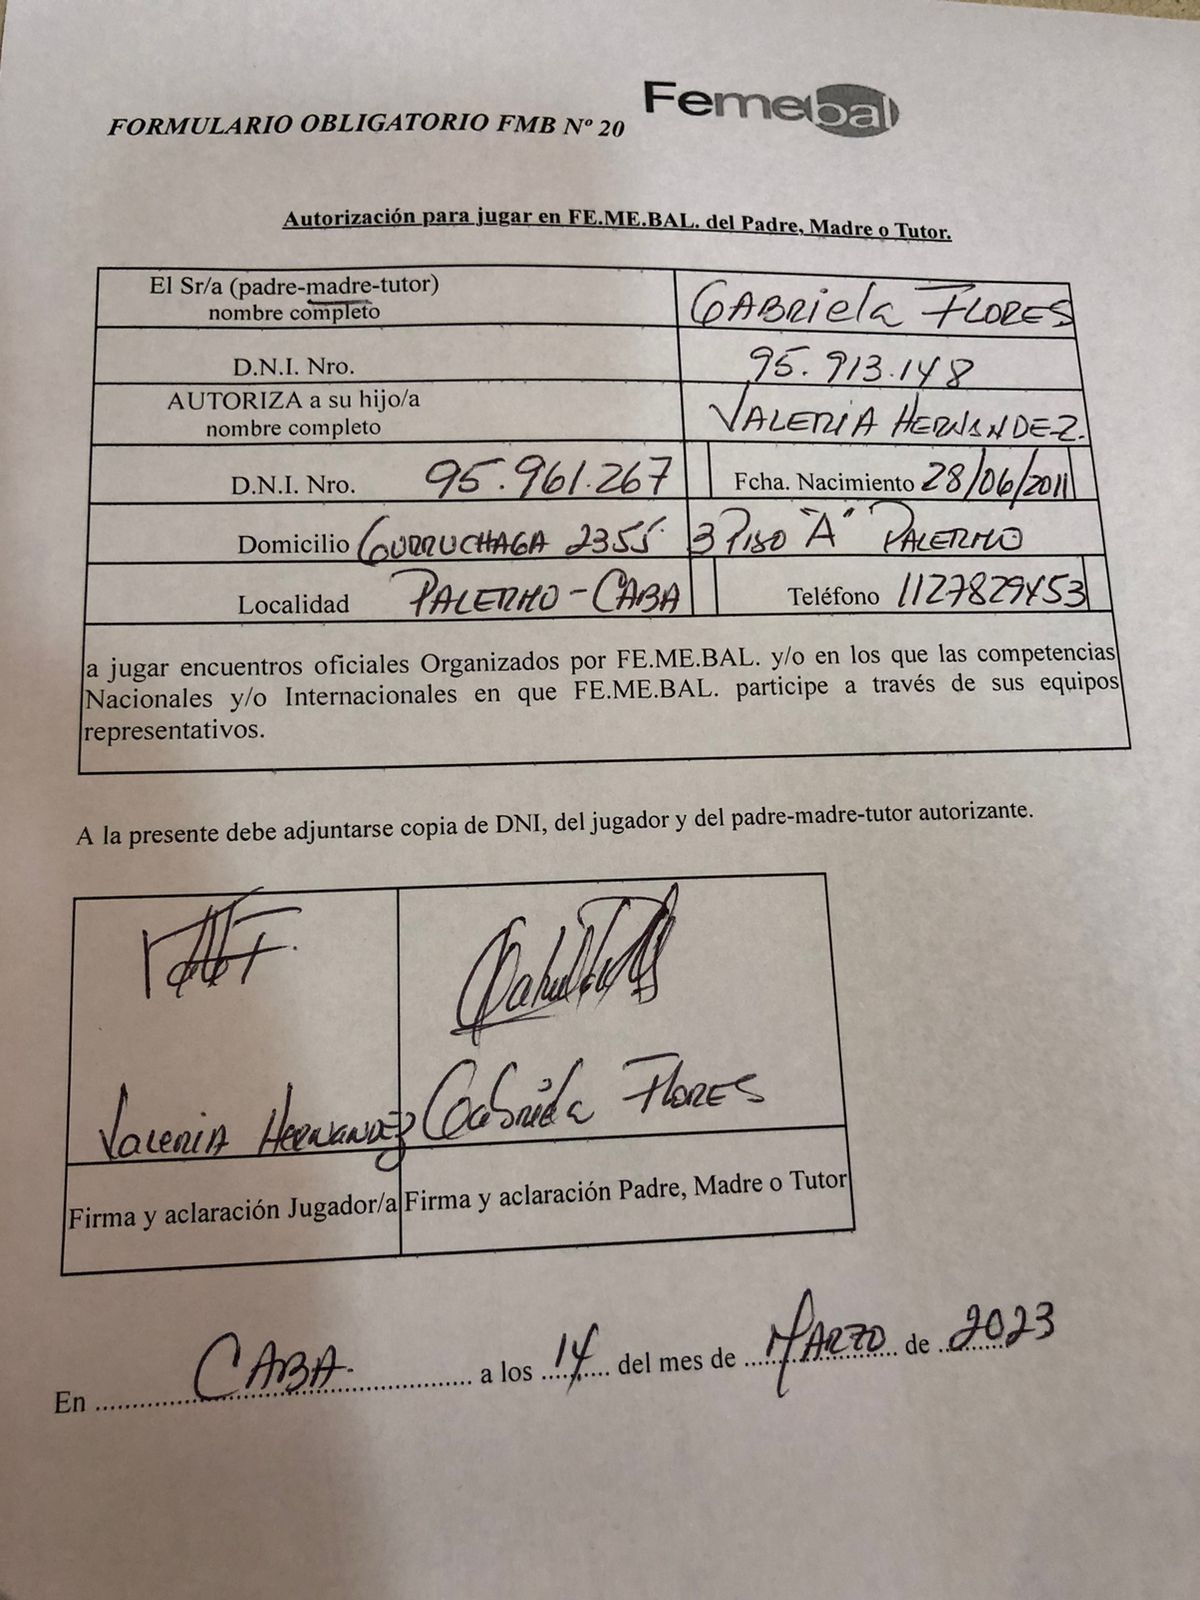 FORMULARIO OBLIGATORIO FMB Nº 20 Femebal
Autorización para jugar en FE.ME.BAL. del Padre, Madre o Tutor.
El Sr/a (padre-madre-tutor)
nombre completo
GABRiela FLORES
D.N.I. Nro. 95.913.148
AUTORIZA a su hijo/a
nombre completo
VALERIA HERNANDEZ.
D.N.I. Nro. 95.961.267 Fcha. Nacimiento 28/06/2011
Domicilio GURRUCHAGA 2355 3 PISO "A" PALERMO
Localidad PALERMO - CABA Teléfono 1127829453
a jugar encuentros oficiales Organizados por FE.ME.BAL. y/o en los que las competencias
Nacionales y/o Internacionales en que FE.ME.BAL. participe a través de sus equipos
representativos.
A la presente debe adjuntarse copia de DNI, del jugador y del padre-madre-tutor autorizante.
Valeria HERNANDEZ Gabriela FLORES
Firma y aclaración Jugador/a Firma y aclaración Padre, Madre o Tutor
En CABA. a los 14 del mes de MARZO de 2023